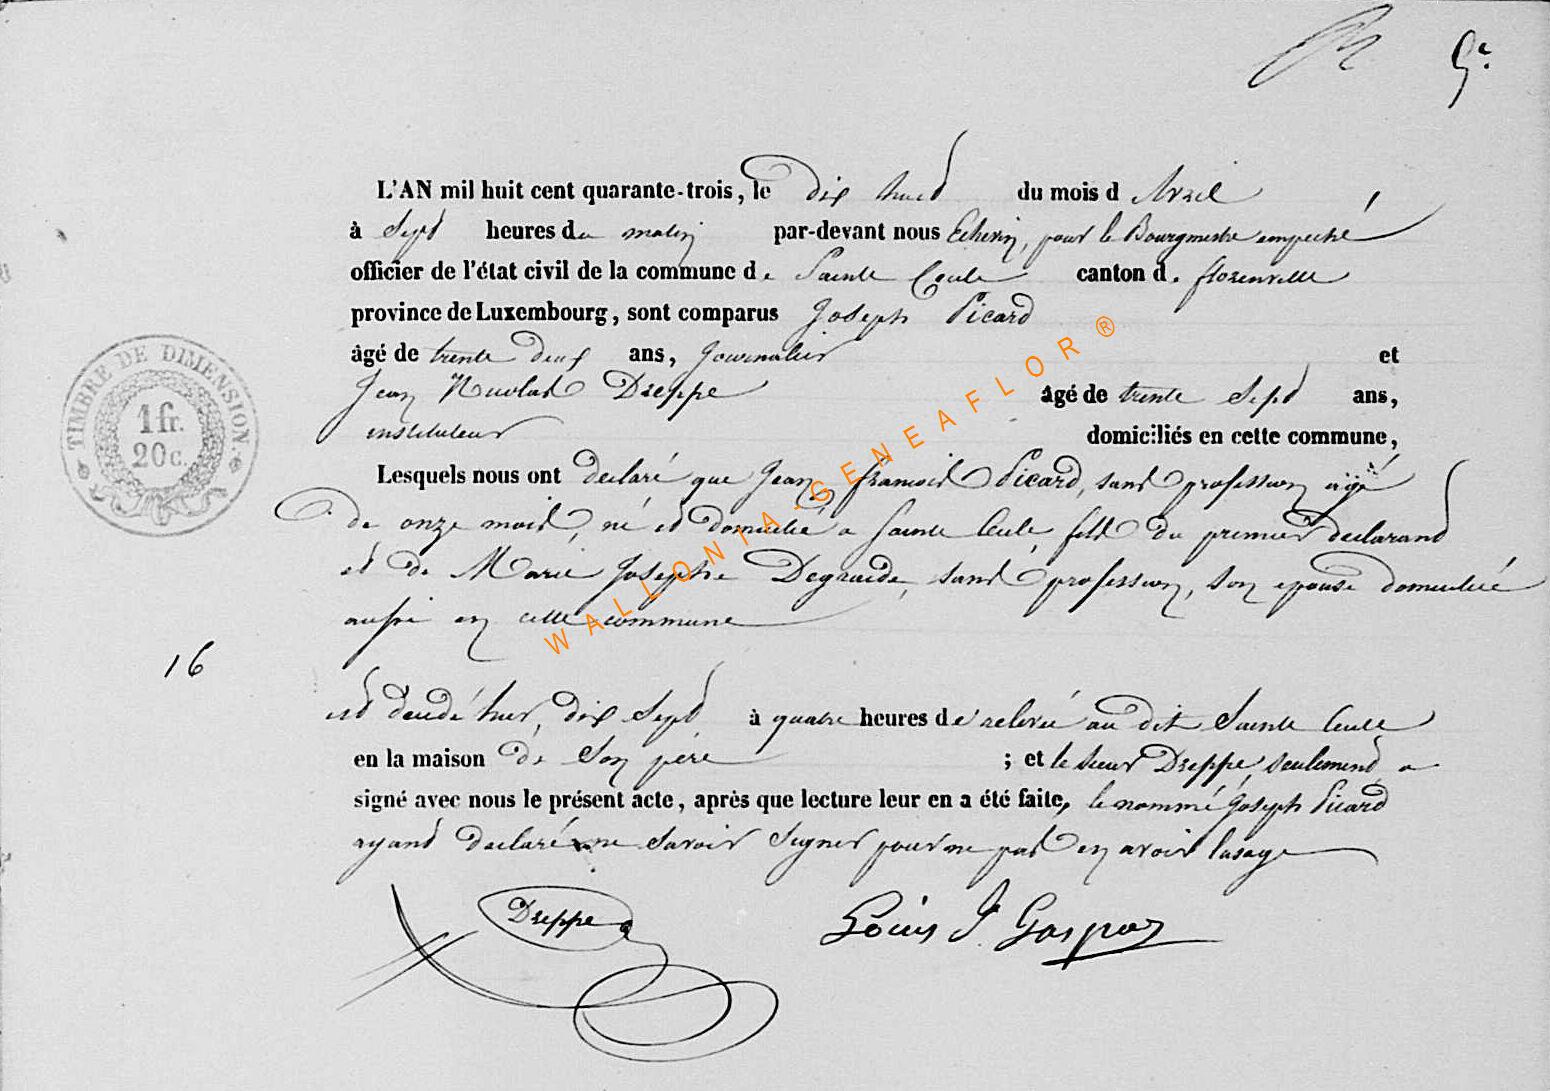 5e.
L'AN mil huit cent quarante-trois, le dix huit du mois d'Avril
à Sept heures du matin par-devant nous Echevin, pour le Bourgmestre empeché
officier de l'état civil de la commune de Sainte Cecile canton de florenville
province de Luxembourg, sont comparus Joseph Picard
âgé de trente deux ans, Journalier et
Jean Nicolas Dreppe âgé de trente Sept ans,
instituteur domiciliés en cette commune,
Lesquels nous ont declaré que Jean françois Picard, sans profession agé
de onze mois, né et domicilié a Sainte Cecile, fils du premier declarant
et de Marie Josephe Degraide, sans profession, son epouse domiciliée
aussi en cette commune
est decedé hier, dix Sept à quatre heures de relevée au dit Sainte Cecile
en la maison de Son père ; et le sieur Dreppe, seulement a
signé avec nous le présent acte, après que lecture leur en a été faite, le nommé Joseph Picard
ayant declaré ne savoir Signer pour ne pas en avoir lusage
16
Dreppe
Louis J Gaspar
TIMBRE DE DIMENSION.
1 fr.
20 c.
WALLONIA-GENEAFLOR®